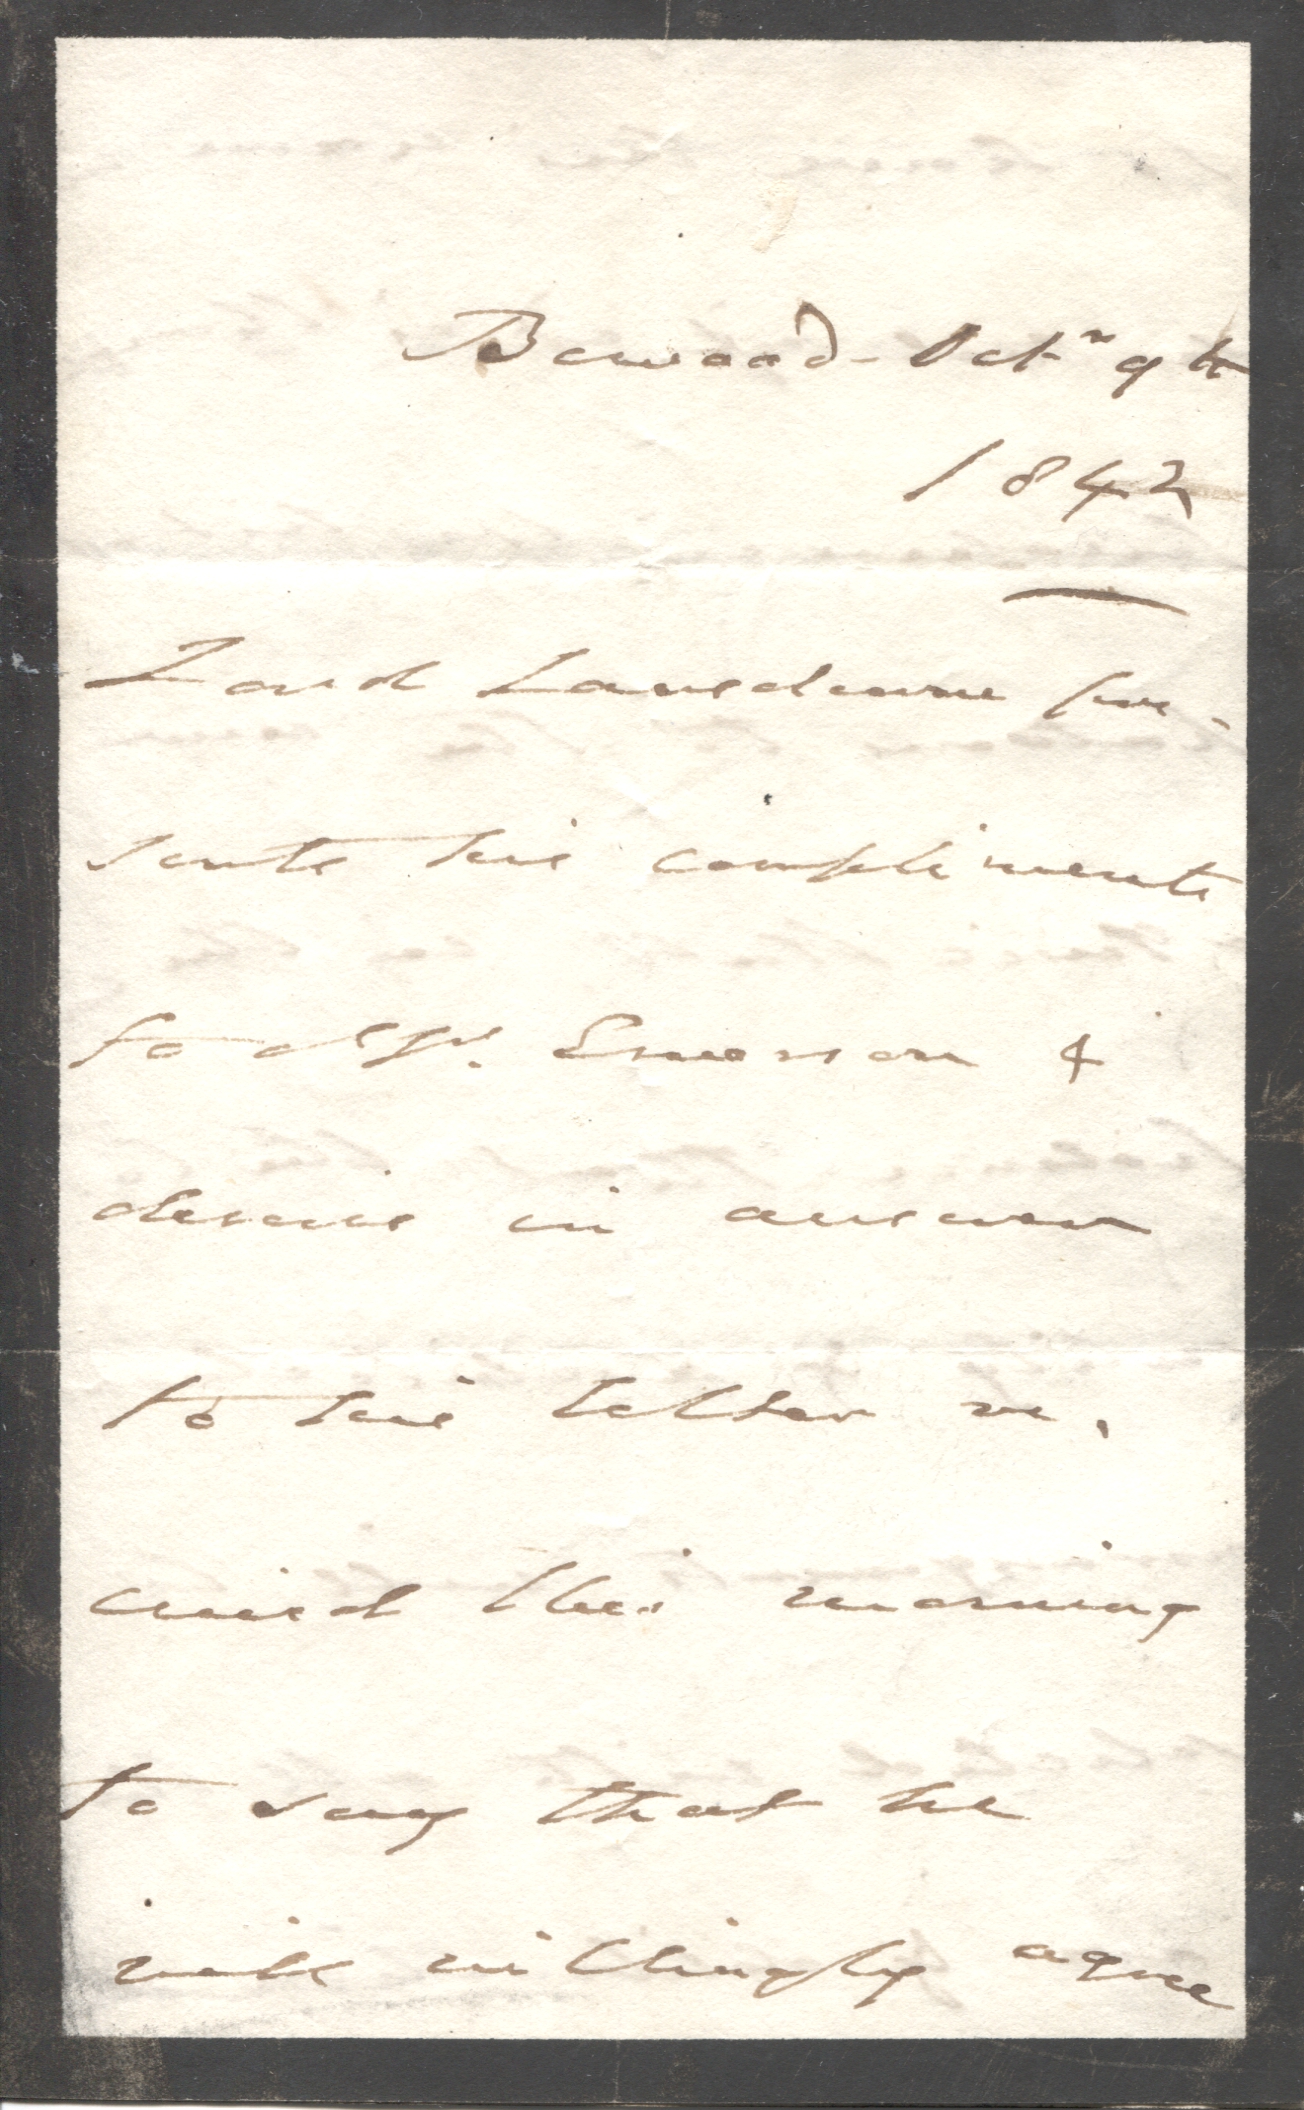 Bowood - Octr 9th
1842
Lord Lansdowne pre-
sents his compliments
to Mr. Emerson &
desires in answer
to his letter re-
ceived this morning
to say that he
will willingly agree